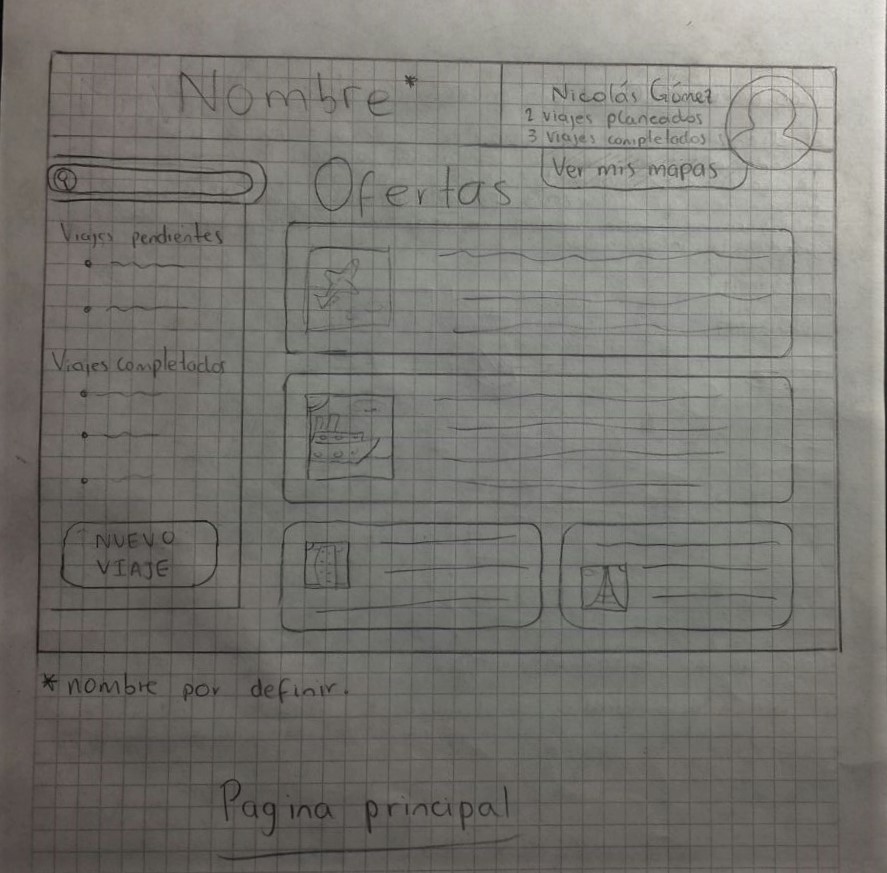 Nombre*
Nicolás Gómez
2 viajes planeados
3 viajes completados
Ver mis mapas
Ofertas
Viajes pendientes
Viajes completados
NUEVO
VIAJE
*nombre por definir.
Pagina principal